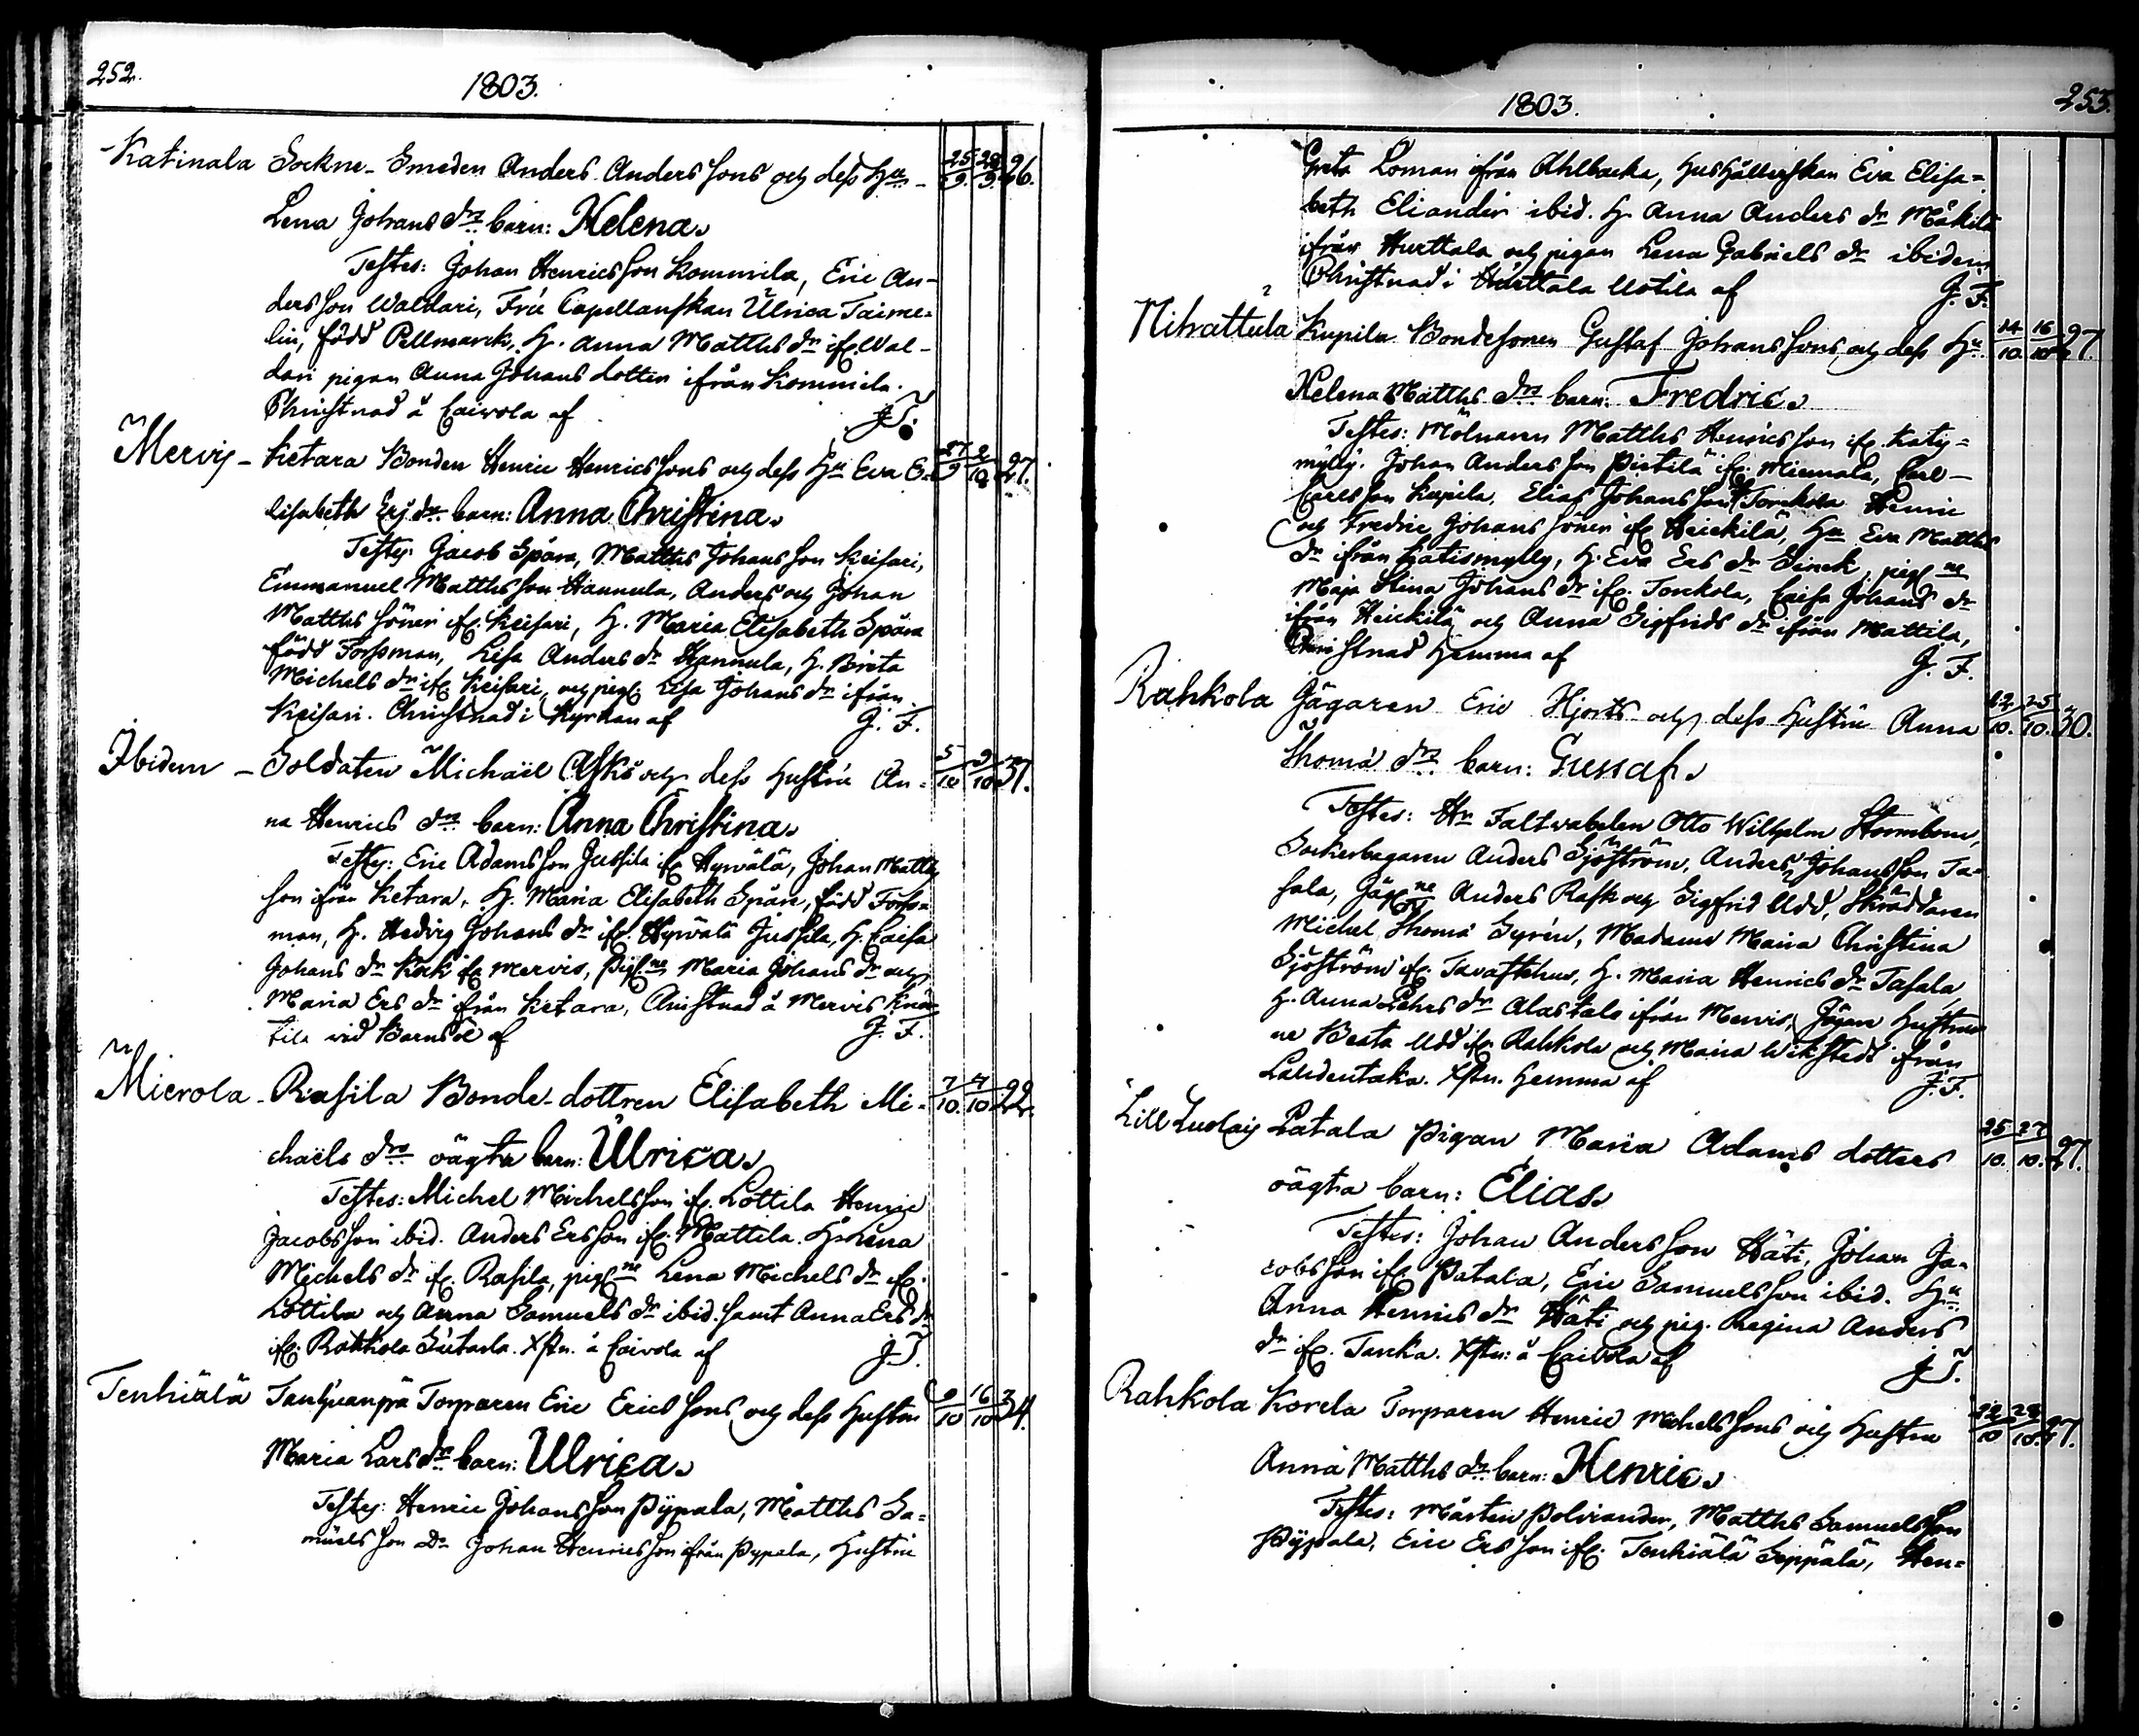 252.
1803.
Katinala Sockne-Smeden Anders Anderssons och dess Hu 25/9. 28/9. 26.
Lena Johans drs barn: Helena.
Testes: Johan Henricsson Kommila, Eric An-
dersson Waldari, Fru Capellanskan Ulrica Taime-
lin, född Pellmarck, H. Anna Matths dr ifr. Wal-
dari pigan Anna Johans dotter ifrån Kommila.
Christnad å Caivola af J.T.
Mervis - Ketara Bonden Henric Henricssons och dess Hu Eva E- 27/9 2/10 27.
lisabeth Ers drs barn: Anna Christina.
Testes: Jacob Spåra, Matths Johansson Keisari,
Emmanuel Matthsson Hannula, Anders och Johan
Matths söner ifr. Keisari, H. Maria Elisabeth Spåra
född Forssman, Lisa Anders dr Hannula, H. Brita
Michels dr ifr. Keisari, och pig. Lisa Johans dr ifrån
Keisari. Christnad i Kyrkan af J. F.
Ibidem - Soldaten Michaël Asks och dess hustru An- 5/10 9/10 37.
na Henrics drs barn: Anna Christina.
Testes: Eric Adamsson Jussila ifr Hyrvälä, Johan Matths
son ifrån Ketara, H. Maria Elisabeth Spåre, född Forss-
man, H. Hedvig Johans dr ifr. Hyrvälä Jussila, H. Caisa
Johans dr Kock ifr Mervis, Pig:ne Maria Johans dr och
Maria Ers dr ifrån Ketara, Christnad å Mervis
tila wid Barnsöl af J. F.
Mierola - Rasila Bonde-dottren Elisabeth Mi- 7/10. 7/10 22.
chaëls drs oägta barn: Ulrica.
Testes: Michel Michelsson ifr. Lottila Henric
Jacobsson ibid. Anders Ersson ifr. Mattila. H. Lena
Michels dr ifr. Rasila, pig:ne Lena Michels dr ifr.
Lottila och Anna Samuels dr ibid. samt Anna Ers dr
ifr. Rahkola Sutarla. Xstn. å Caivola af J.T.
Tenhiälä Tanhuanpä Torparen Eric Ericssons och dess hustru 9/10 16/10 34.
Maria Lars drs barn: Ulrica.
Testes: Henric Johansson Pypala, Matths Sa-
muelsson Dr Johan Henricsson ifrån Pypala, Hustru
1803.
253.
Greta Loman ifrån Ahlbacka, Hushållerskan Eva Elisa-
beth Eliander ibid. H. Anna Anders dr Mäkilä
ifrån Hurttala och pigan Lena Gabriels dr ibidem
Christnad i Hurttala Uotila af J. F.
Nihattula Kupila Bondesonen Gustaf Johanssons och dess Hu 14/10 16/10 27.
Helena Matths drs barn: Fredric.
Testes: Mölnaren Matths Henricsson ifr. Katis-
mylly. Johan Andersson Pirtilä ifr. Miemala, Carl
Carlsson Kupila, Elias Johansson Torckola Henric
och Fredric Johans söner ifr Heickilä, Hu Eva Matths
dr ifrån Katismylly, H. Eva Ers dr Sinck, pig:ne
Maja Stina Johans dr ifr. Torckola, Caisa Johans dr
ifrån Heickilä och Anna Sigfrids dr ifrån Mattila,
Christnad hemma af J. F.
Rahkola Jägaren Eric Hjorts och dess hustru Anna 22/10. 25/10. 30.
Thomä drs barn: Gustaf.
Testes: Hr Otto Wilhelm Strömbom,
Sockerbagaren Anders Sjöström, Anders Johansson Ta-
sala, Jäg:ne Anders Rask och Sigfrid Udd, Skräddaren
Michel Thomä Syrén, Madame Maria Christina
Sjöström ifr. Tavastehus, H. Maria Henrics dr Tasala,
H. Anna Pehrs dr Alastalo ifrån Mervis, Jägare Hustrur
ne Beata Udd ifr. Rahkola och Maria Wikstedt ifrån
Laudentaka. Xstn. hemma af J.F.
Lill Luolais Patala Pigan Maria Adams dotters 25/10. 27/10. 27.
oägta barn: Elias.
Testes: Johan Andersson Häti, Johan Ja-
cobsson ifr. Patala, Eric Samuelsson ibid. Hu
Anna Henrics dr Häti och pig. Regina Anders
dr ifr. Tancka. Xstn: å Caivola af J.T.
Rahkola Korela Torparen Henric Michelssons och hustru 22/10 28/10. 27.
Anna Matths drs barn: Henric.
Testes: Mårten Polviander, Matths Samuelsson
Pyppala, Eric Ersson ifr. Tenhiälä Seppälä, Hen-